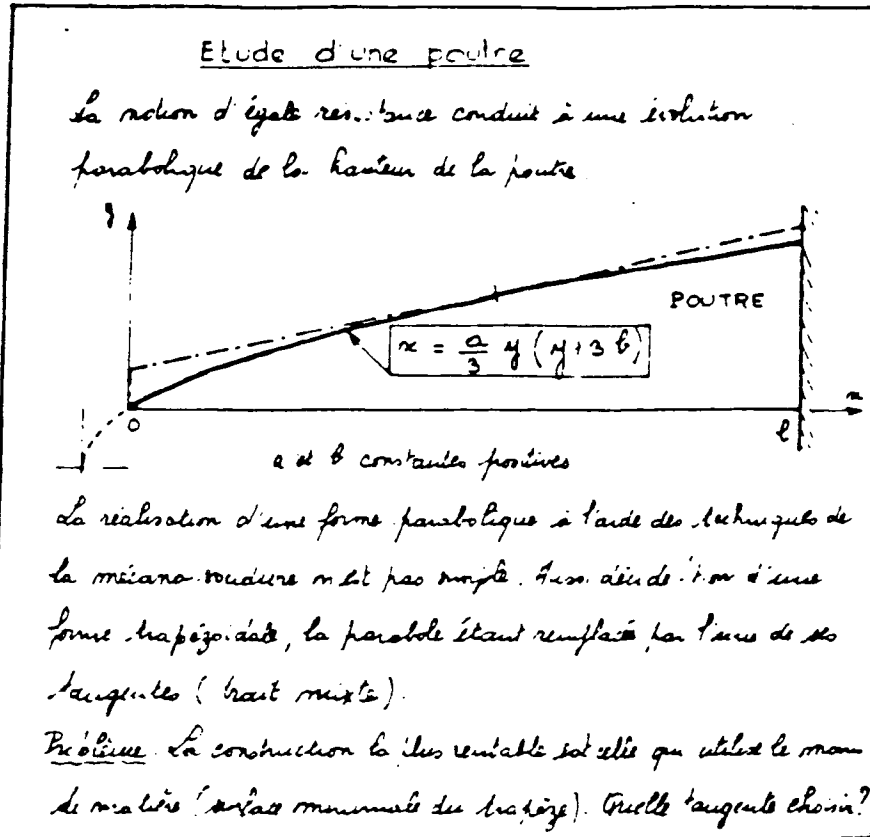 Etude d'une poutre
La notion d'égale résistance conduit à une évolution
parabolique de la hauteur de la poutre
y
POUTRE
x = a/3 y (y+3b)
x
O
l
a et b constantes positives
La réalisation d'une forme parabolique à l'aide des techniques de
la mécano-soudure n'est pas simple. Aussi décide-t-on d'une
forme trapézoïdale, la parabole étant remplacée par l'une de ses
tangentes (trait mixte).
Problème La construction la plus rentable est celle qui utilise le moins
de matière (surface minimale du trapèze). Quelle tangente choisir?